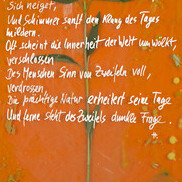 Sich neiget,
Und Schimmer sanft den Klang des Tages
mildern.
Oft scheint die Innerheit der Welt umwölkt,
verschlossen
Des Menschen Sinn von Zweifeln voll,
verdrossen,
Die prächtige Natur erheitert seine Tage
Und ferne steht des Zweifels dunkle Frage.